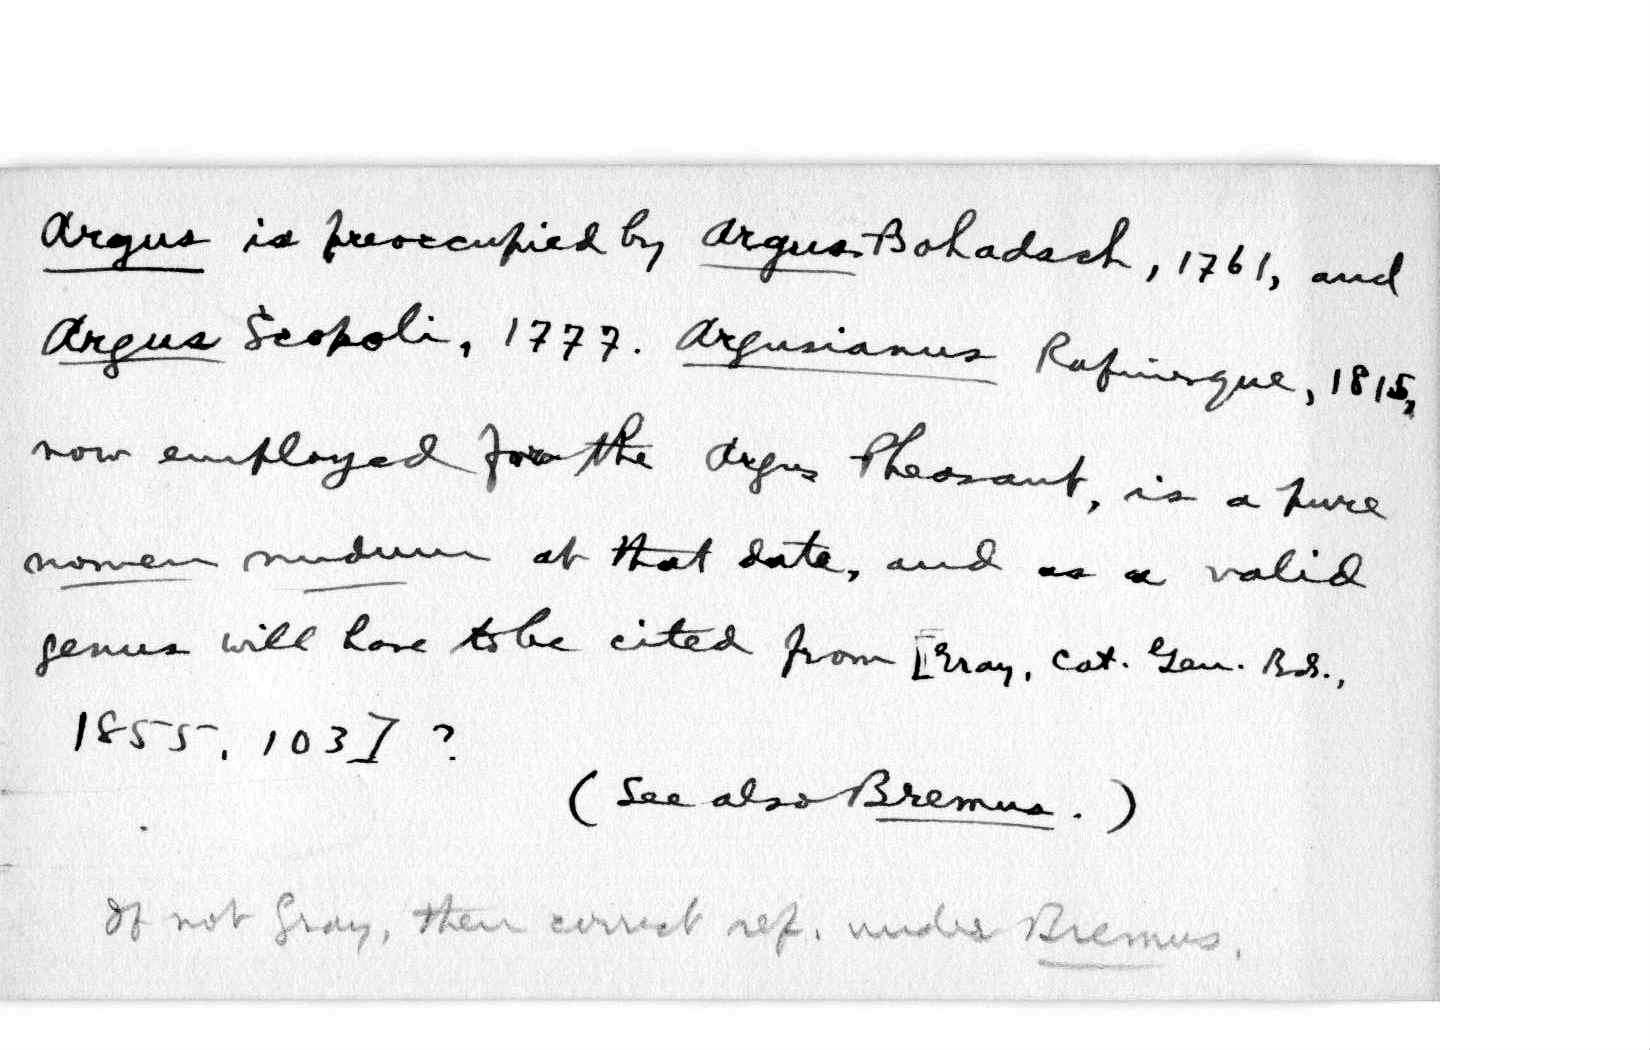 Argus is preoccupied by Argus Bohadsch, 1761, and
Argus Scopoli, 1777. Argusianus Rafinesque, 1815,
now employed for the Argus Pheasant, is a pure
nomen nudum at that date, and as a valid
genus will have to be cited from [Gray, Cat. Gen. Bds.,
1855, 103] ?
(See also Bremus.)
If not Gray, then correct ref. under Bremus.